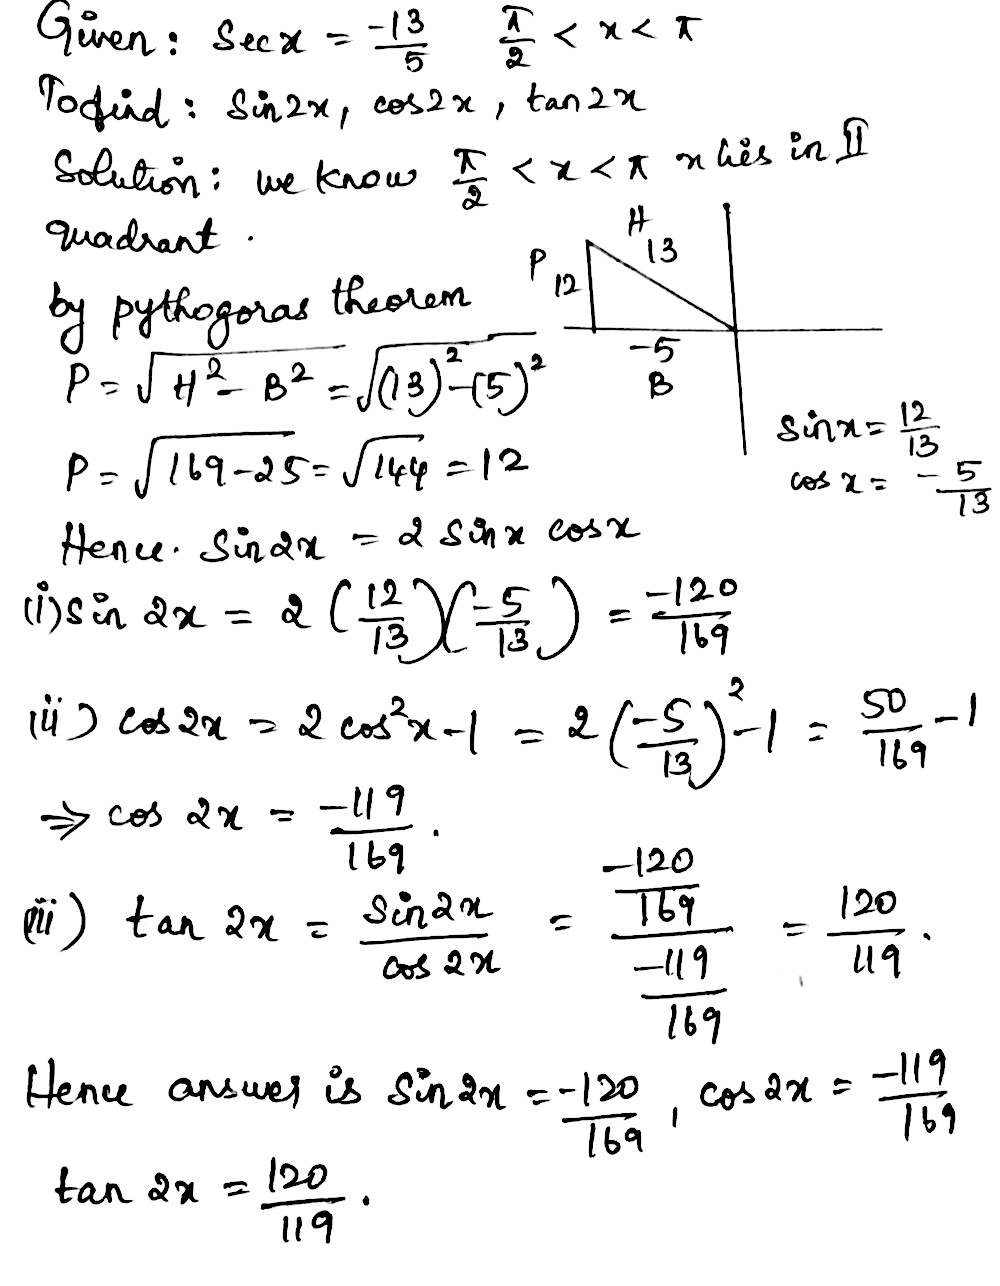 Given: Sec x = -13/5 π/2 < x < π
To find: Sin2x, cos2x, tan2x
Solution: we know π/2 < x < π x lies in II
quadrant.
H
13
P
12
by pythogoras theorem
-5
B
P = √(H² - B²) = √((13)² - (5)²)
sinx = 12/13
P = √(169-25) = √144 = 12
cos x = -5/13
Hence. Sin2x = 2 Sin x cosx
(i) sin 2x = 2 (12/13)(-5/13) = -120/169
(ii) cos2x = 2 cos²x - 1 = 2(-5/13)² - 1 = 50/169 - 1
⇒ cos 2x = -119/169.
(iii) tan 2x = Sin2x/cos 2x = (-120/169)/(-119/169) = 120/119.
Hence answer is Sin2x = -120/169, cos2x = -119/169
tan 2x = 120/119.